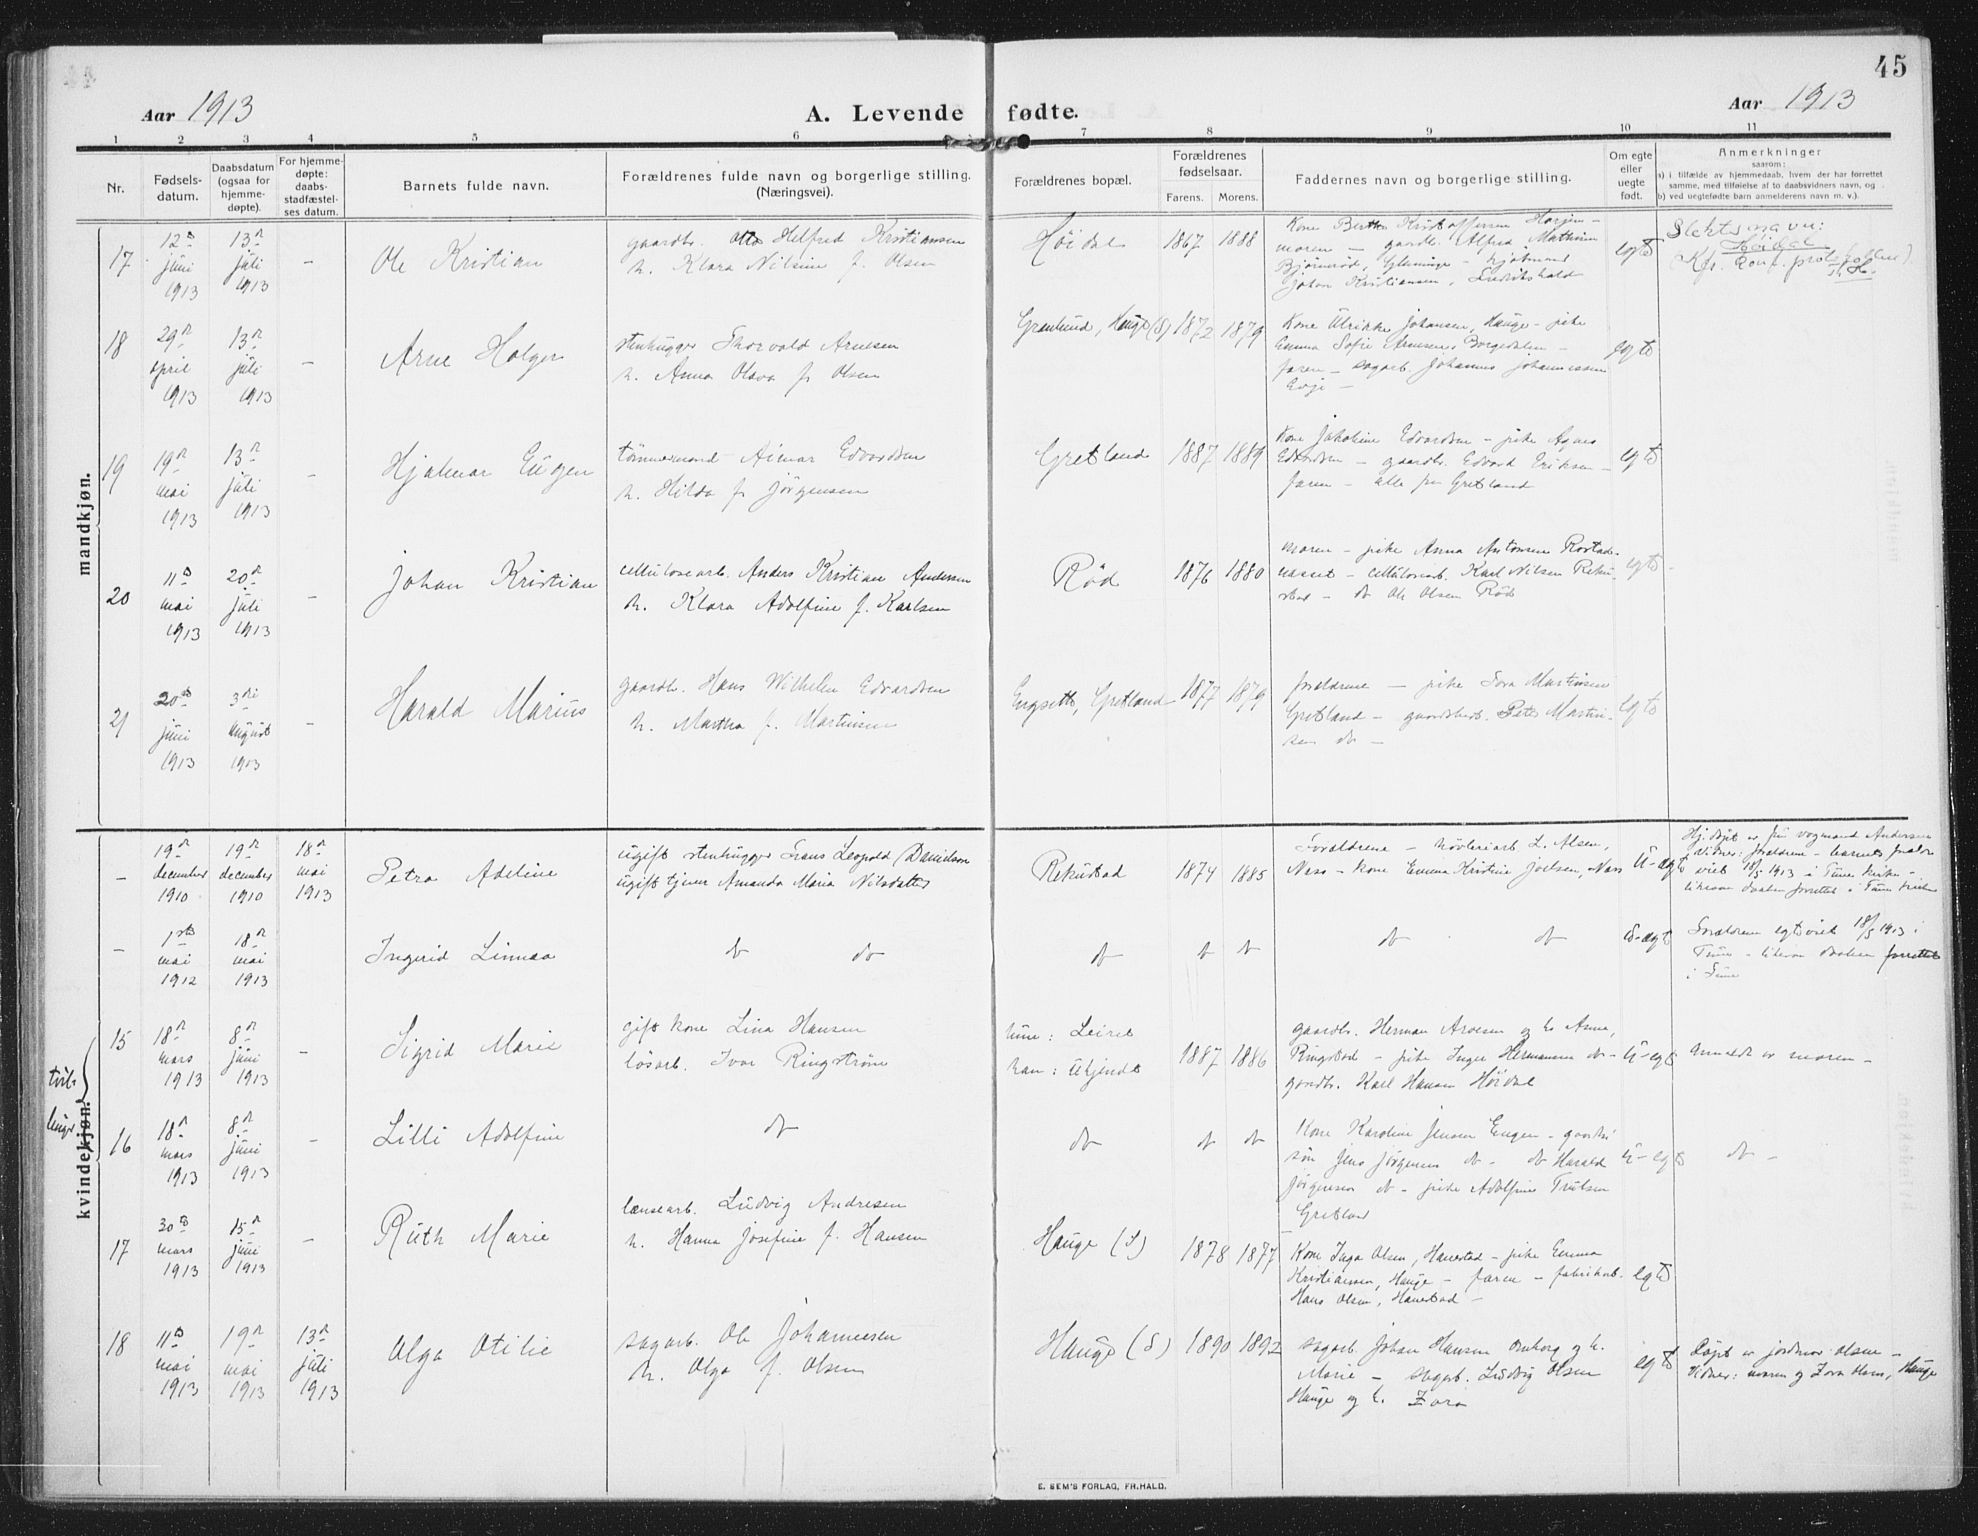 45
Aar 1913
A. Levende fødte.
Aar 1913
1 2 3 4 5 6 7 8 9 10 11
Nr.
Fødsels-
datum.
Daabsdatum
(ogsaa for
hjemme-
døpte).
For hjemme-
døpte:
daabs-
stadfæstel-
ses datum.
Barnets fulde navn.
Forældrenes fulde navn og borgerlige stilling.
(Næringsvei).
Forældrenes bopæl.
Forældrenes
fødselsaar.
Farens. Morens.
Faddernes navn og borgerlige stilling.
Om egte
eller
uegte
født.
Anmerkninger
saasom:
a) i tilfælde av hjemmedaab, hvem der har forrettet
samme, med tilføielse af to daabsvidners navn, og
b) ved uegtefødte barn anmelderens navn m. v.).
mandkjøn.
17
12te
juni
1913
13de
juli
1913
–
Ole Kristian
gaardbr. Otto Helfred Kristiansen
h. Klara Nilsine f. Olsen
Høidal
1867 1888
Kone Berthe Kristoffersen
moren – gaardb. Alfred Mathisen
Bjørnerød, Glemminge –
Johan Kristiansen, Fredrikshald
egte
Slektsnavn:
Høidal
(Kfr. Konf. protokollen)
18
29de
april
1913
13de
juli
1913
–
Arne Holger
stenhugger Thorvald Arnesen
h. Anna Olava f. Olsen
Grønlund, Hauge (S)
1872 1879
Kone Ulrikke Johansen, Hauge – pike
Emma Sofie Arnesen, Borgedalen –
faren – sagarb. Johannes Johannessen
Evje –
egte
19
19de
mai
1913
13de
juli
1913
–
Hjalmar Eugen
tømmermand Aimar Edvardsen
h. Hilda f. Jørgensen
Gretland
1887 1889
Kone Jakobine Edvardsen – pike Agnes
Edvardsen – gaardb. Edvard Eriksen –
faren – alle fra Gretland
egte
20
11te
mai
1913
20de
juli
1913
–
Johan Kristian
cellulosearb. Anders Kristian Andersen
h. Klara Adolfine f. Karlsen
Rød
1876 1880
moren – pike Anna Antonsen
– cellulosearb. Karl Nilsen Reku-
stad – do Ole Olsen Rød
egte
21
20de
juni
1913
3die
august
1913
–
Harald Marius
gaardb. Hans Wilhelm Edvardsen
h. Martha f. Martinsen
Engsette, Gretland
1877 1879
forældrene – pike Tora Martinsen
Gretland – Peter Martin-
sen do –
egte
kvindekjøn.
–
19de
december
1910
19de
december
1910
18de
mai
1913
Petra Adeline
ugift stenhugger Frans Leopold Danielson
ugift tjener Amanda Maria Nilsdotter
Rekustad
1874 1885
Forældrene – høvleriarb. L. Olsen,
Næss – kone Emma Kristine Joelsen, Næss
u-ægte
Hj. døpt av fru vognmand Andersen
vidner: forældrene – barnets forældre
viet 18/5 1913 i Tune kirke –
likesaa daaben forrettet i Tune kirke
–
1ste
mai
1912
18de
mai
1913
Ingerid Linnea
do do
do
do do
do do
u-ægte
Forældrene egteviet 18/5 1913 i
Tune – likesaa daaben forrettet
i Tune
tvil-
linger
15
18de
mars
1913
8de
juni
1913
–
Sigrid Marie
gift kone Lina Hansen
løsarb. Ivar Ringstrøm
hun: Leiret
han: ukjendt
1887 1886
gaardb. Herman Arvesen og h. Anna,
Ringstad – pike Inger Hermansen do –
gaardb. Karl Hansen Høidal
u-egte
Anmeldt av moren –
16
18de
mars
1913
8de
juni
1913
–
Lilli Adolfine
do
do
do do
Kone Karoline Jensen Engen –
søn Jens Jørgensen do – do Harald
Jørgensen do – pike Adolfine Trulsen
Gretland –
u-egte
do –
17
30te
mars
1913
15de
juni
1913
–
Ruth Marie
lænsearb. Ludvig Andresen
h. Hanna Josefine f. Hansen
Hauge (S)
1878 1877
Kone Inga Olsen, Hanestad – pike Emma
Kristiansen, Hauge – faren – fabrikarb.
Hans Olsen, Hanestad –
egte
18
11te
mai
1913
19de
mai
1913
13de
juli
1913
Olga Otilie
sagarb. Ole Johannesen
h. Olga f. Olsen
Hauge (S)
1890 1892
sagarb. Johan Hansen og h.
Marie – sagarb. Ludvig Olsen
Hauge og h. Zora
egte
Døpt av jordmor Olsen –
Vidner: moren og Zora Olsen, Hauge
E. SEM'S FORLAG, FR.HALD.